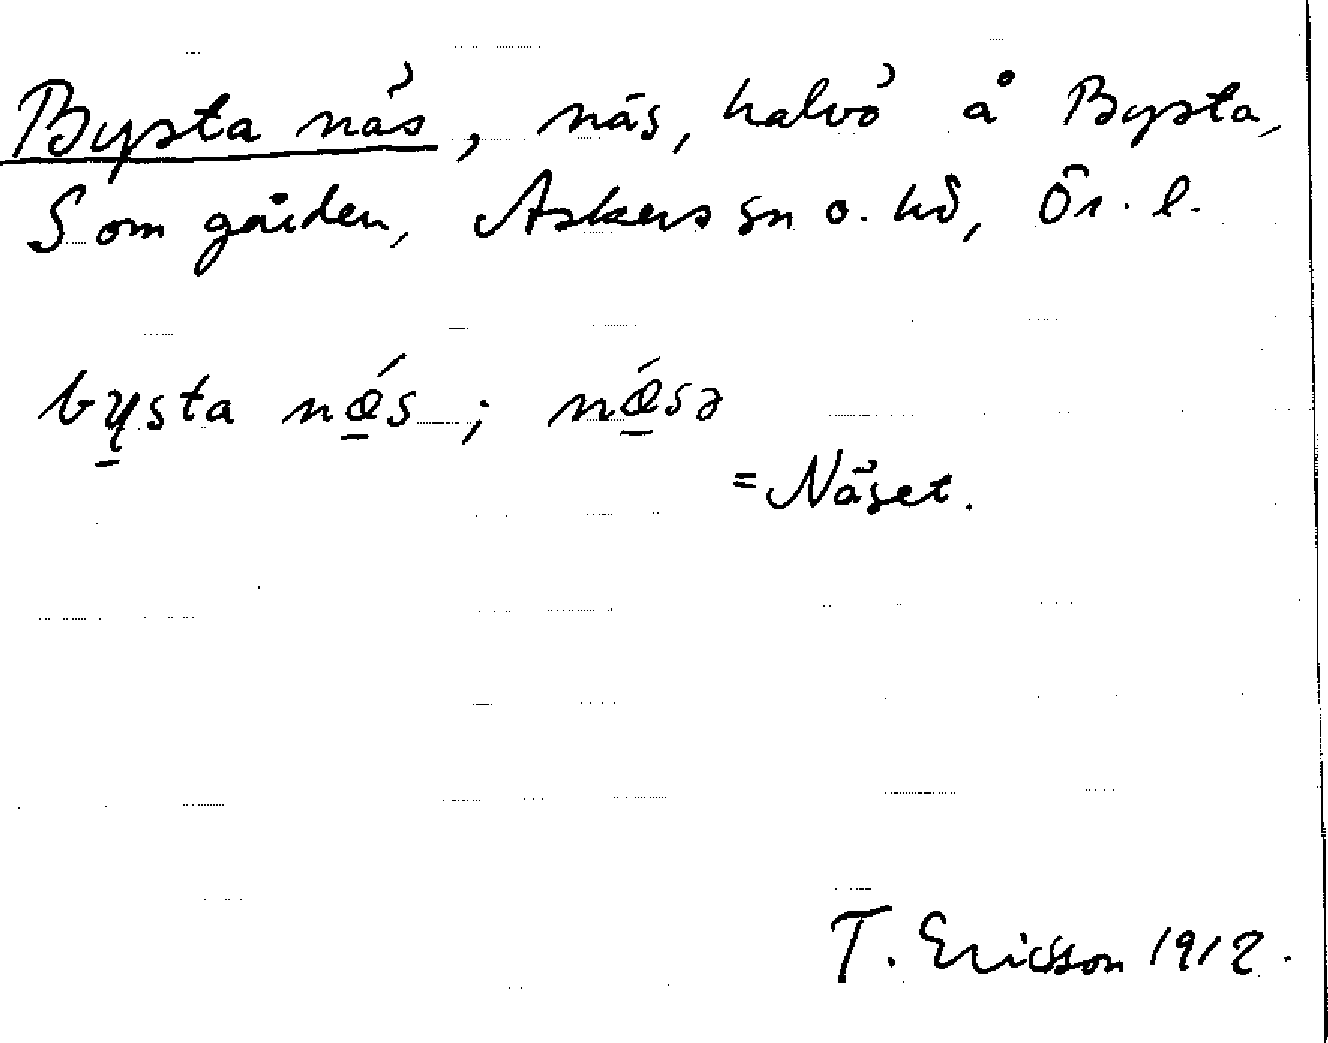 Bysta näs, näs, halvö å Bysta,
S om gården, Askers sn o. hd, Ör. l.
bysta nǽs; nǽsə
= Näset.
T. Ericsson 1912.